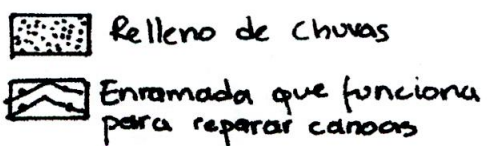 Relleno de Chuvas
Enramada que funciona
para reparar canoas